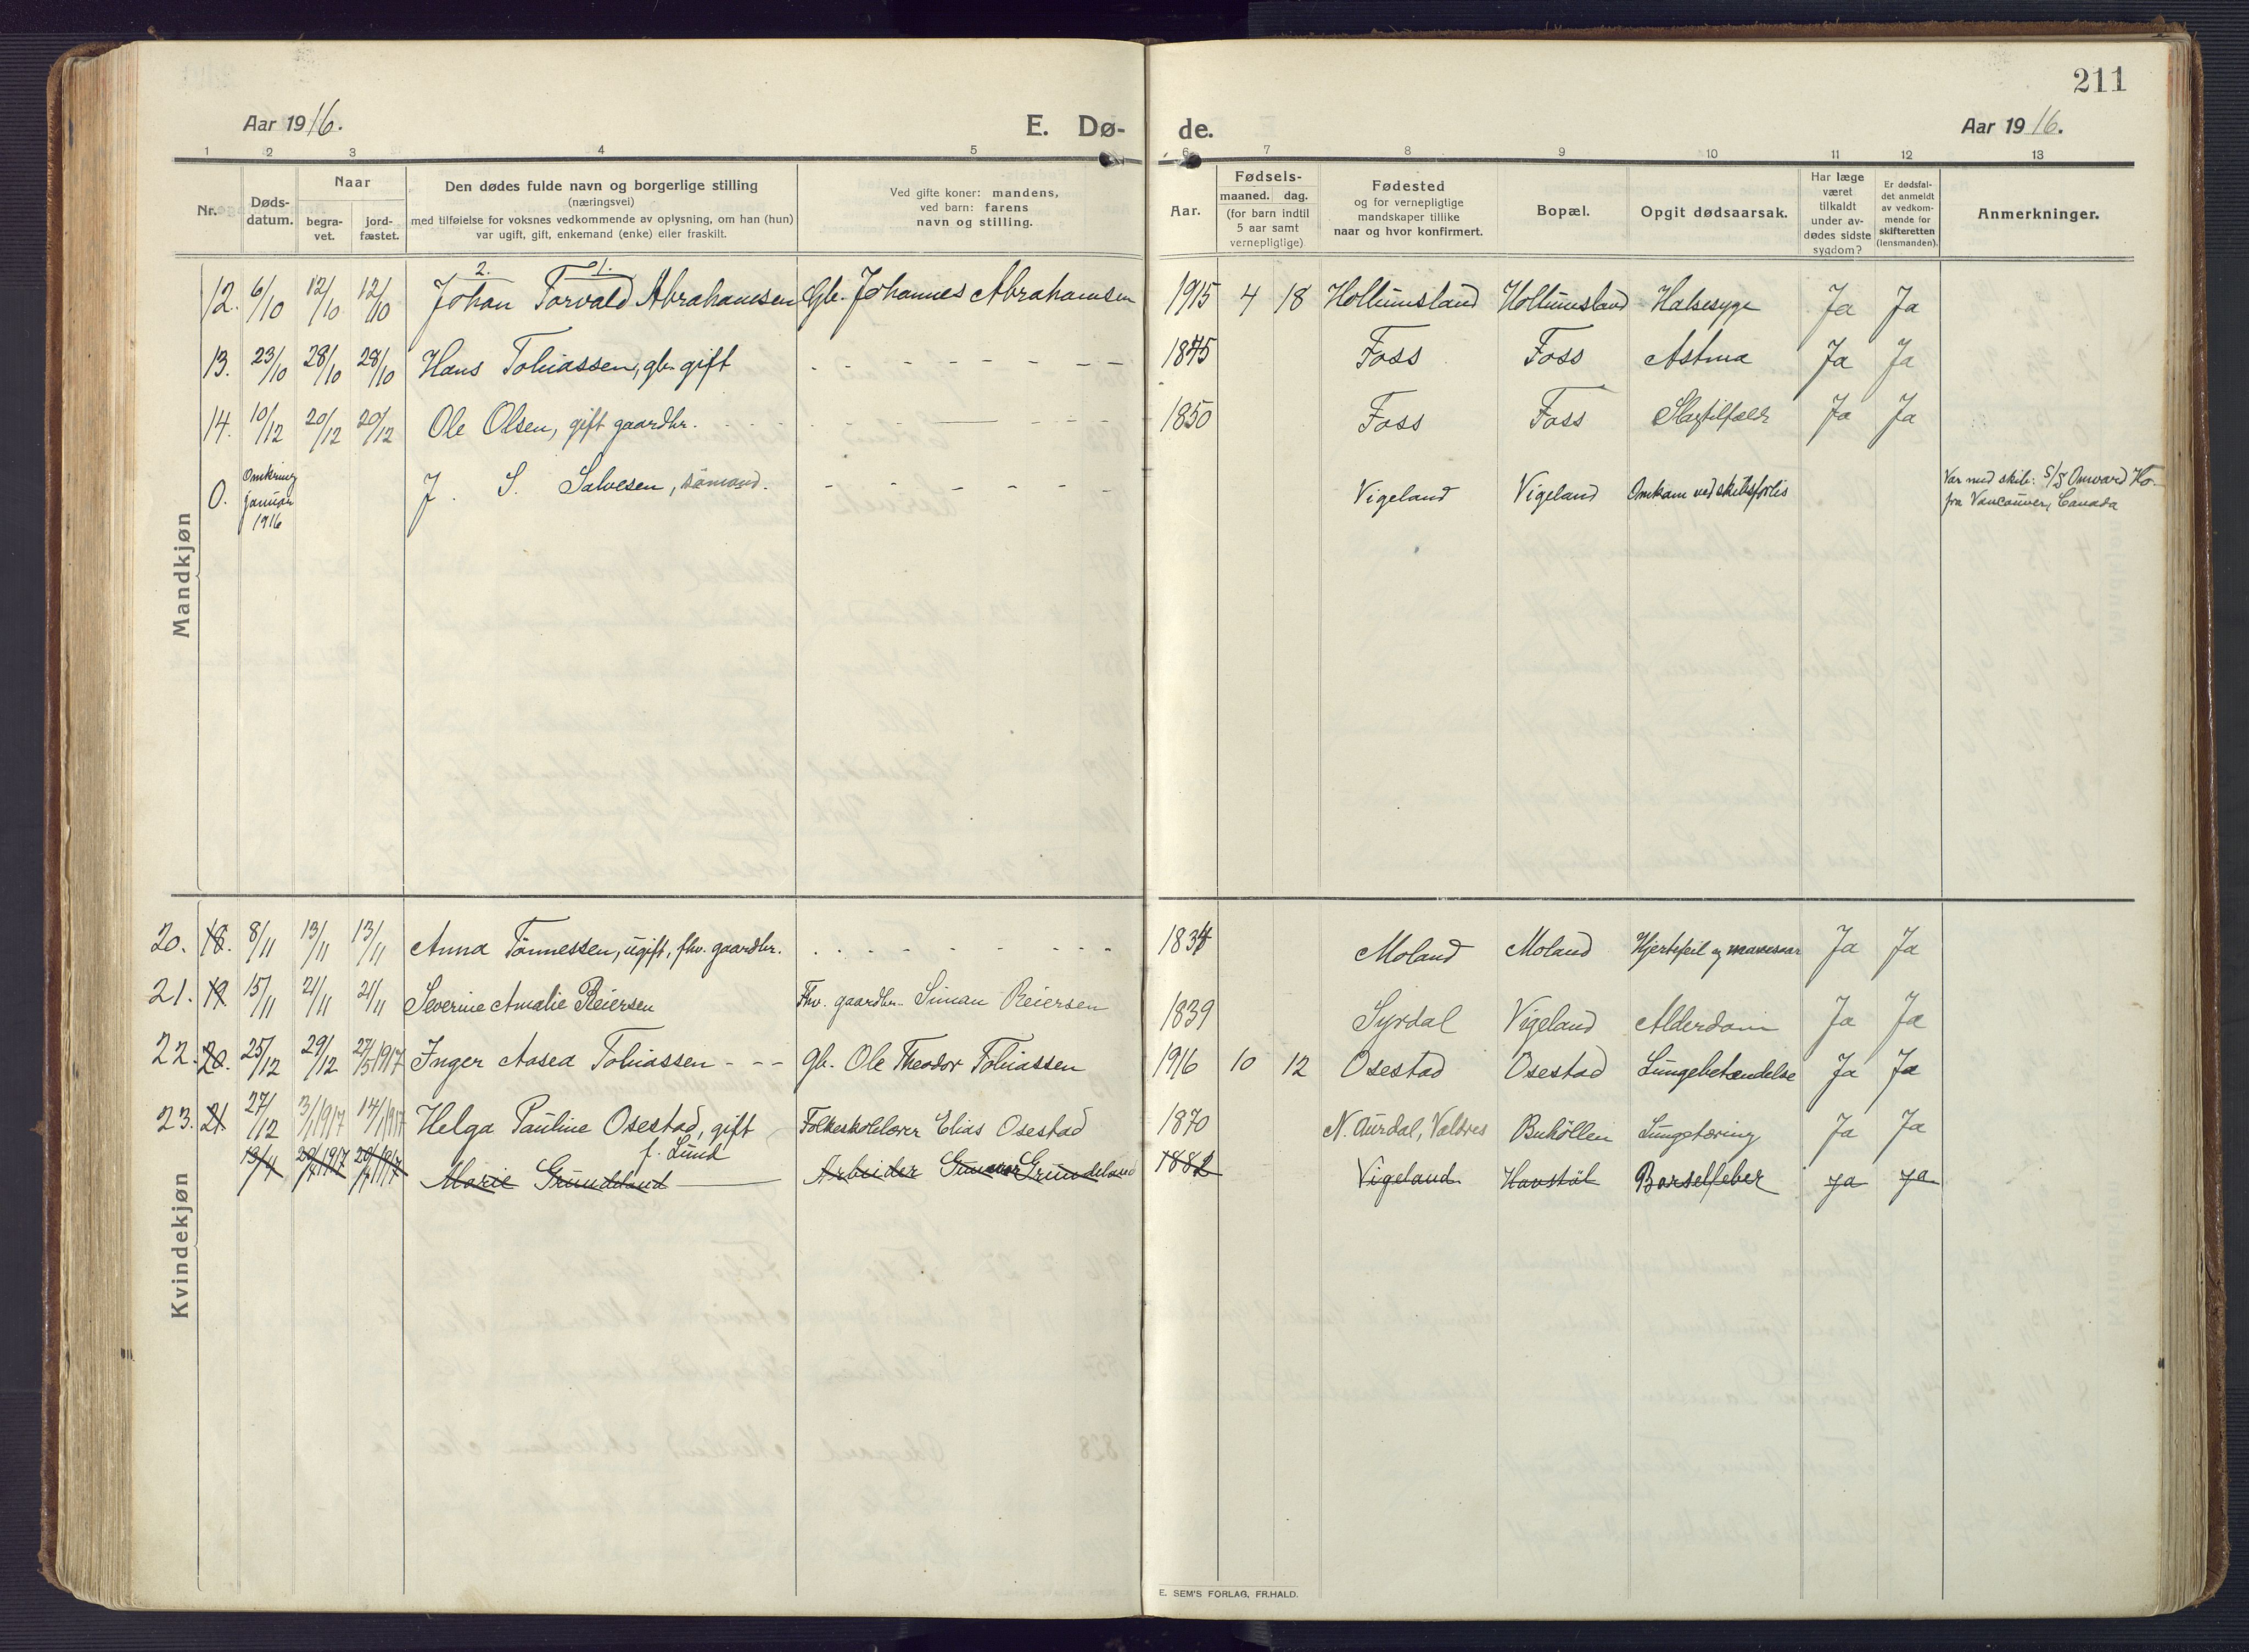 211
Aar 1916. E. Dø- de. Aar 1916.
1 2 3 4 5 6 7 8 9 10 11 12 13
Nr.
Døds-
datum.
Naar
begra-
vet.
jord-
fæstet.
Den dødes fulde navn og borgerlige stilling
(næringsvei)
med tilføielse for voksnes vedkommende av oplysning, om han (hun)
var ugift, gift, enkemand (enke) eller fraskilt.
Ved gifte koner: mandens,
ved barn: farens
navn og stilling.
Aar.
Fødsels-
maaned. dag.
(for barn indtil
5 aar samt
vernepligtige)
Fødested
og for vernepligtige
mandskaper tillike
naar og hvor konfirmert.
Bopæl.
Opgit dødsaarsak.
Har læge
været
tilkaldt
under av-
dødes sidste
sygdom?
Er dødsfal-
det anmeldt
av vedkom-
mende for
skifteretten
(lensmanden).
Anmerkninger.
Mandkjøn
2. 1.
12. 6/10 12/10 12/10 Johan Torvald Abrahamsen Gbr. Johannes Abrahamsen 1915 4 18 Hollumsland Hollumsland Halsesyge Ja Ja
13. 23/10 28/10 28/10 Hans Tobiassen, gbr. gift - - - - - - - - 1845 Foss Foss Astma Ja Ja
14. 10/12 20/12 20/12 Ole Olsen, gift gaardbr. - - - - - - - 1850 Foss Foss Slagtilfælde Ja Ja
0. Omkring januar 1916 J. S. Salvesen, sømand. - - - - - - - Vigeland Vigeland Omkom ved skibsforlis Var med skib: S/S Onward Ho
fra Vancouver, Canada
Kvindekjøn
20. 18. 8/11 13/11 13/11 Anna Tønnessen, ugift, fhv. gaardbr. - - - - - - - - 1834 Moland Moland Hjertefeil og mavesaar Ja Ja
21. 19 15/11 21/11 21/11 Severine Amalie Reiersen Fhv. gaardbr. Siman Reiersen 1839 Syrdal Vigeland Alderdom Ja Ja
22. 20. 25/12 29/12 27/5 1917 Inger Aasea Tobiassen - - - gb. Ole Theodor Tobiassen 1916 10 12 Osestad Osestad Lungebetændelse Ja Ja
23. 21 27/12 3/1 1917 14/1 1917 Helga Pauline Osestad, gift Folkeskolelærer Elias Osestad 1870 N. Aurdal, Valdres Buhøllen Lungetæring Ja Ja
f. Lund
13/4 1917 1917 Marie Grundeland Arbeider Gunnar Grundeland 1882 Vigeland Havstøl Barselfeber Ja Ja
E. SEM'S FORLAG, FR.HALD.